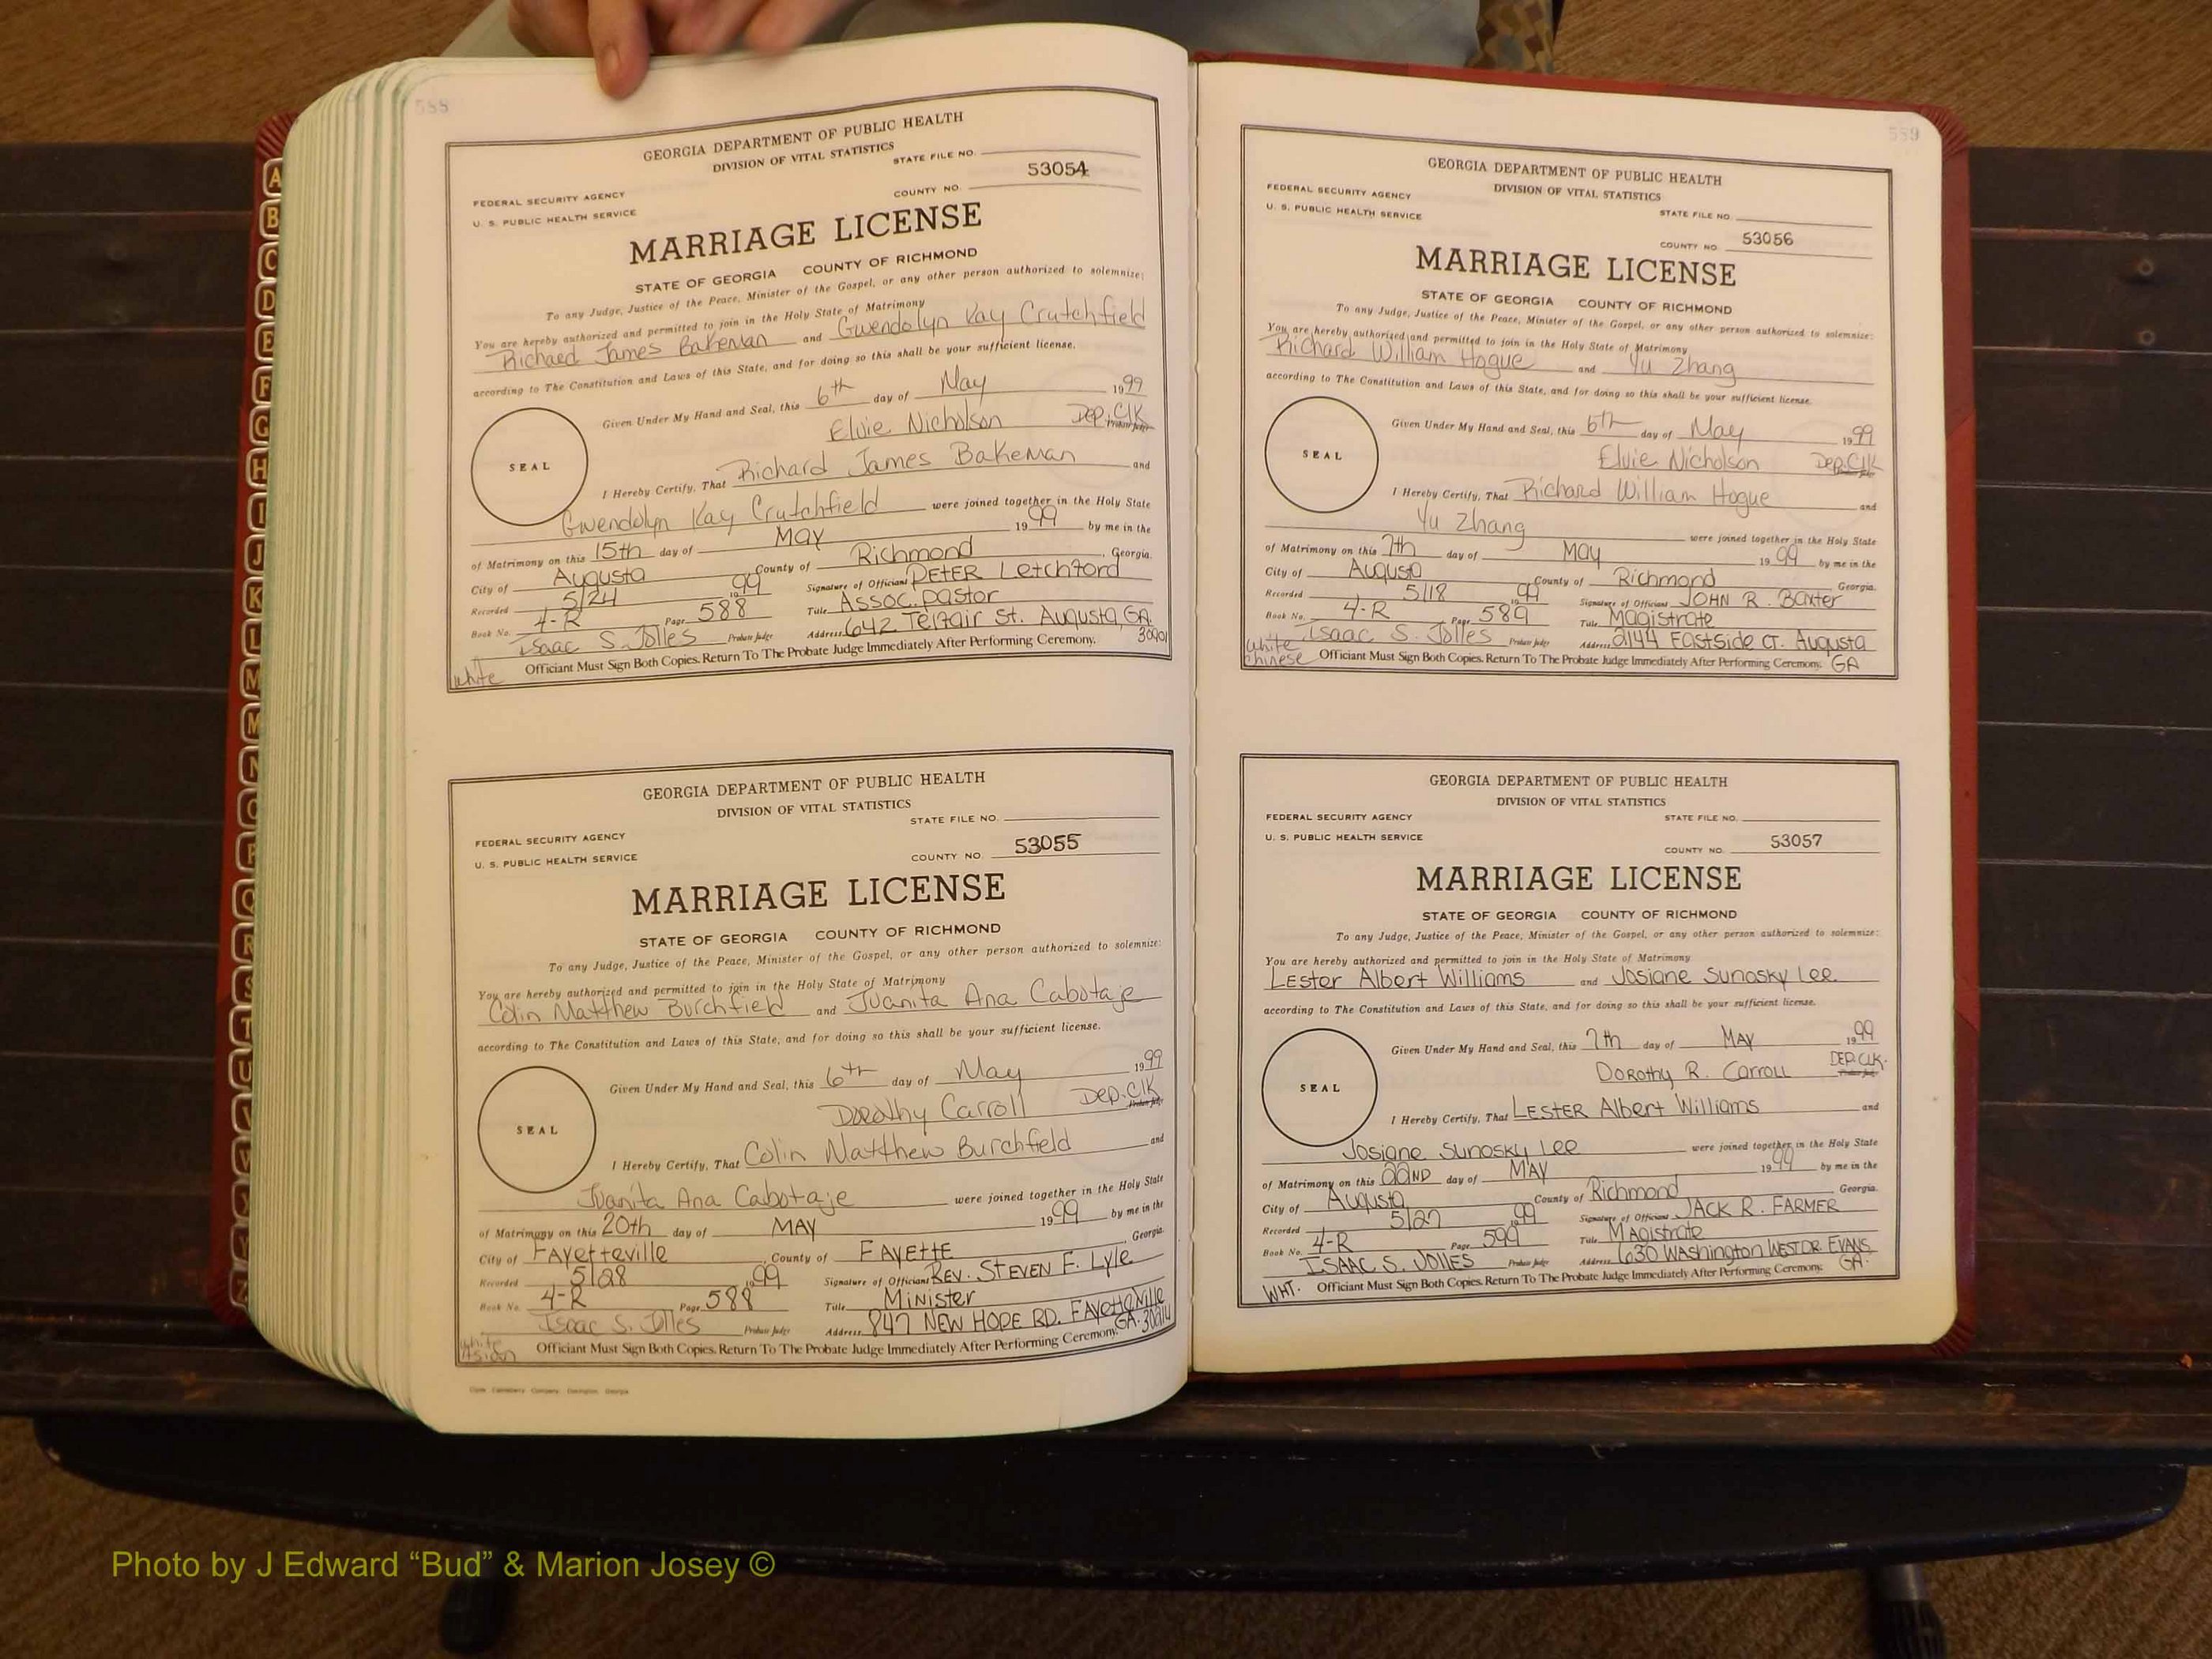 588
GEORGIA DEPARTMENT OF PUBLIC HEALTH
DIVISION OF VITAL STATISTICS
STATE FILE NO.
FEDERAL SECURITY AGENCY
COUNTY NO. 53054
U. S. PUBLIC HEALTH SERVICE
MARRIAGE LICENSE
STATE OF GEORGIA COUNTY OF RICHMOND
To any Judge, Justice of the Peace, Minister of the Gospel, or any other person authorized to solemnize:
You are hereby authorized and permitted to join in the Holy State of Matrimony
Richard James Bakeman and Gwendolyn Kay Crutchfield
according to The Constitution and Laws of this State, and for doing so this shall be your sufficient license.
Given Under My Hand and Seal, this 6th day of May 1999
Elvie Nicholson Dep. Clk Probate Judge
SEAL
I Hereby Certify, That Richard James Bakeman and
Gwendolyn Kay Crutchfield were joined together in the Holy State
of Matrimony on this 15th day of May 1999 by me in the
City of Augusta County of Richmond, Georgia.
Recorded 5/24 1999 Signature of Official PETER Letchford
Book No. 4-R Page 588 Title Assoc. pastor
Isaac S. Jolles Probate Judge Address 642 Telfair St. Augusta, GA. 30901
White Officiant Must Sign Both Copies. Return To The Probate Judge Immediately After Performing Ceremony.
GEORGIA DEPARTMENT OF PUBLIC HEALTH
DIVISION OF VITAL STATISTICS
STATE FILE NO.
FEDERAL SECURITY AGENCY
COUNTY NO. 53055
U. S. PUBLIC HEALTH SERVICE
MARRIAGE LICENSE
STATE OF GEORGIA COUNTY OF RICHMOND
To any Judge, Justice of the Peace, Minister of the Gospel, or any other person authorized to solemnize:
You are hereby authorized and permitted to join in the Holy State of Matrimony
Colin Matthew Burchfield and Juanita Ana Cabotaje
according to The Constitution and Laws of this State, and for doing so this shall be your sufficient license.
Given Under My Hand and Seal, this 6th day of May 1999
Dorothy Carroll Dep. Clk Probate Judge
SEAL
I Hereby Certify, That Colin Matthew Burchfield and
Juanita Ana Cabotaje were joined together in the Holy State
of Matrimony on this 20th day of MAY 1999 by me in the
City of FAYetteville, County of FAYETTE, Georgia.
Recorded 5/28 1999 Signature of Official Rev. STEVEN F. Lyle
Book No. 4-R Page 588 Title Minister
Isaac S. Jolles Probate Judge Address 847 NEW HOPE RD. FAYetteville GA. 30214
White Asian Officiant Must Sign Both Copies. Return To The Probate Judge Immediately After Performing Ceremony.
589
GEORGIA DEPARTMENT OF PUBLIC HEALTH
DIVISION OF VITAL STATISTICS
FEDERAL SECURITY AGENCY
U. S. PUBLIC HEALTH SERVICE
STATE FILE NO.
COUNTY NO. 53056
MARRIAGE LICENSE
STATE OF GEORGIA COUNTY OF RICHMOND
To any Judge, Justice of the Peace, Minister of the Gospel, or any other person authorized to solemnize:
You are hereby authorized and permitted to join in the Holy State of Matrimony
Richard William Hogue and Yu Zhang
according to The Constitution and Laws of this State, and for doing so this shall be your sufficient license.
Given Under My Hand and Seal, this 6th day of May 1999
Elvie Nicholson Dep. Clk
SEAL
I Hereby Certify, That Richard William Hogue and
Yu Zhang were joined together in the Holy State
of Matrimony on this 7th day of MAY 1999 by me in the
City of Augusta County of Richmond Georgia.
Recorded 5/18 1999 Signature of Official JOHN R. Baxter
Book No. 4-R Page 589 Title Magistrate
Isaac S. Jolles Probate Judge Address 2144 Eastside CT. Augusta GA
White Chinese Officiant Must Sign Both Copies. Return To The Probate Judge Immediately After Performing Ceremony.
GEORGIA DEPARTMENT OF PUBLIC HEALTH
DIVISION OF VITAL STATISTICS
FEDERAL SECURITY AGENCY
STATE FILE NO.
U. S. PUBLIC HEALTH SERVICE
COUNTY NO. 53057
MARRIAGE LICENSE
STATE OF GEORGIA COUNTY OF RICHMOND
To any Judge, Justice of the Peace, Minister of the Gospel, or any other person authorized to solemnize:
You are hereby authorized and permitted to join in the Holy State of Matrimony
Lester Albert Williams and Josiane Sunosky Lee
according to The Constitution and Laws of this State, and for doing so this shall be your sufficient license.
Given Under My Hand and Seal, this 7th day of MAY 1999
Dorothy R. Carroll DEP. CLK. Probate Judge
SEAL
I Hereby Certify, That LESTER Albert Williams and
Josiane Sunosky Lee were joined together in the Holy State
of Matrimony on this 22ND day of MAY 1999 by me in the
City of Augusta County of Richmond Georgia.
Recorded 5/27 1999 Signature of Official JACK R. FARMER
Book No. 4-R Page 599 Title Magistrate
ISAAC S. JOLLES Probate Judge Address 630 WAshington WEST DR. EVANS GA.
WHT. Officiant Must Sign Both Copies. Return To The Probate Judge Immediately After Performing Ceremony.
A
B
C
D
E
F
G
H
I
J
K
L
M
M
N
O
P
Q
R
S
T
U
V
W
X
Y
Z
Photo by J Edward “Bud” & Marion Josey ©